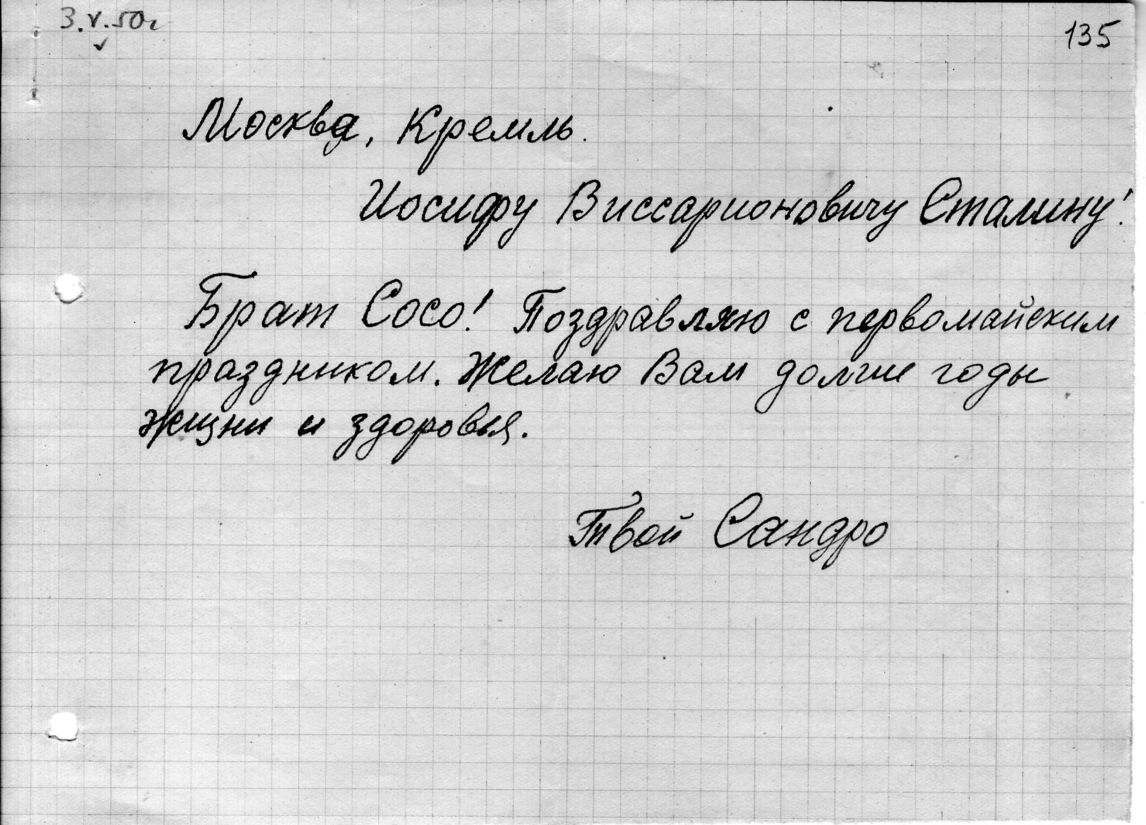 3.V.50г
135
Москва, Кремль.
Иосифу Виссарионовичу Сталину!
Брат Сосо! Поздравляю с первомайским
праздником. Желаю Вам долгие годы
жизни и здоровья.
Твой Сандро